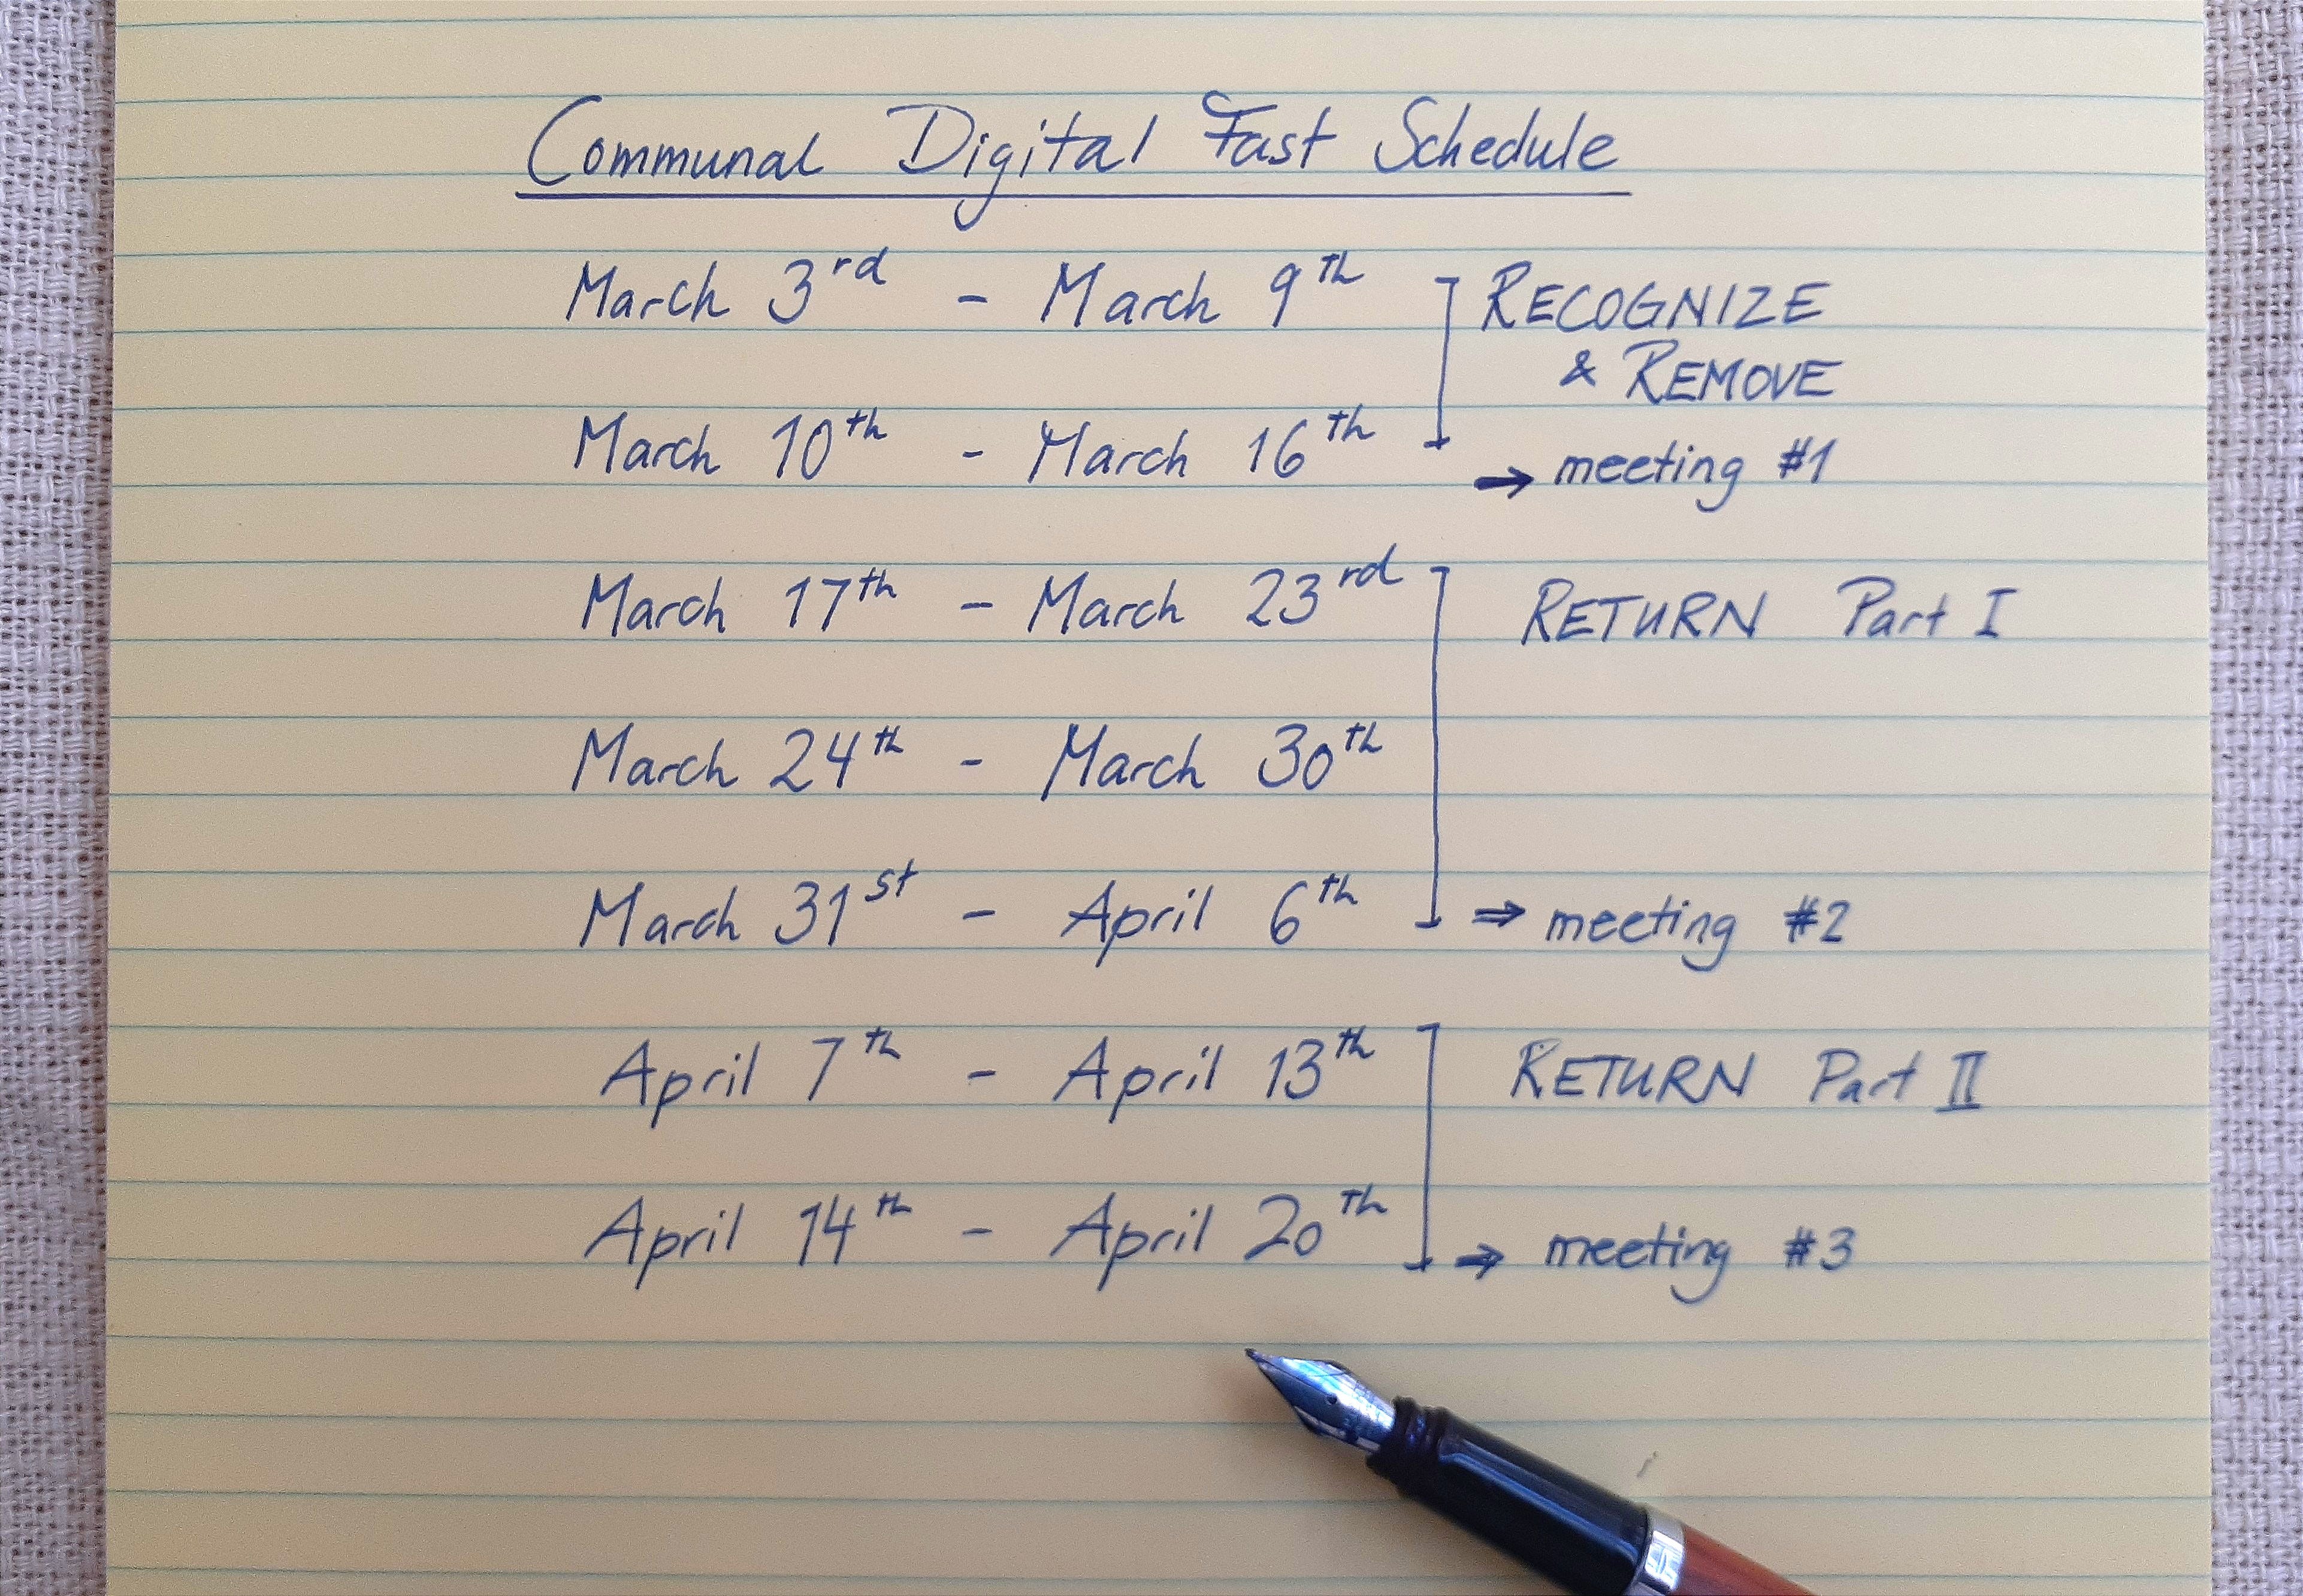 Communal Digital Fast Schedule
March 3rd - March 9th RECOGNIZE
& REMOVE
March 10th - March 16th
→ meeting #1
March 17th - March 23rd RETURN Part I
March 24th - March 30th
March 31st - April 6th ⇒ meeting #2
April 7th - April 13th RETURN Part II
April 14th - April 20th ⇒ meeting #3